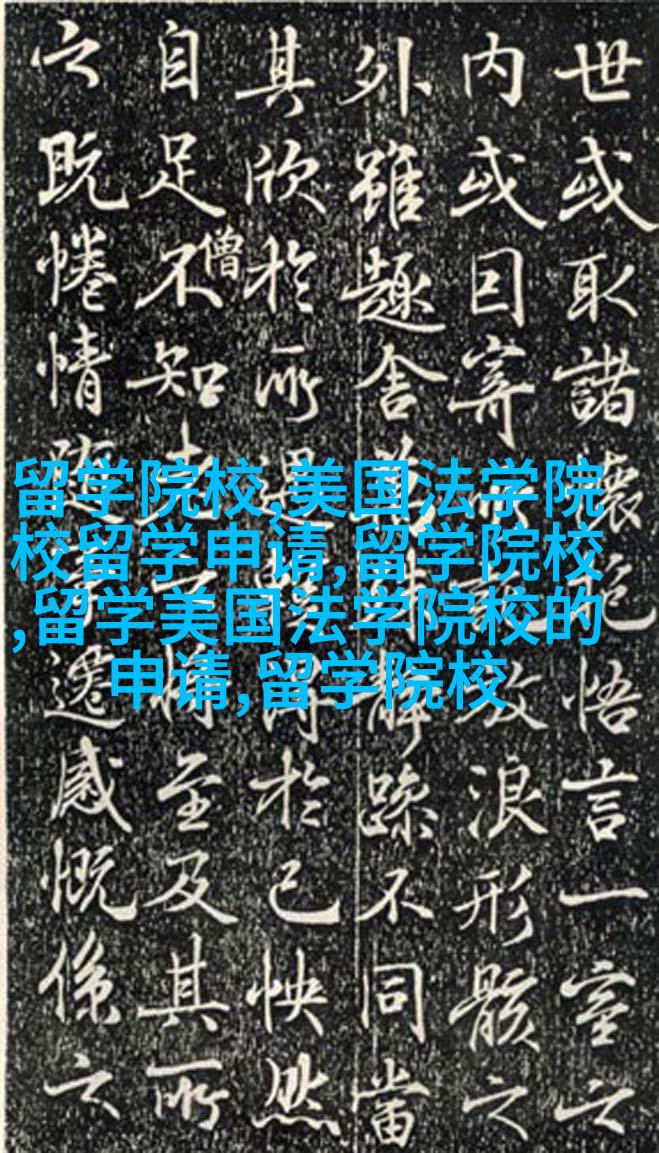 世或取諸懷抱悟言一室之
内或因寄所託放浪形骸之
外雖趣舍萬殊靜躁不同當
其欣於所遇蹔得於己怏然
自足不知老之將至及其所
僧
之既惓情隨事遷感慨係之
留学院校,美国法学院
校留学申请,留学院校
,留学美国法学院校的
申请,留学院校